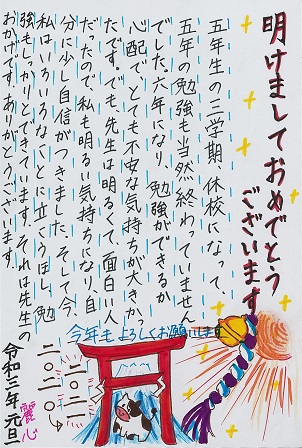 明けましておめでとう
ございます
五年生の三学期、休校になって、
五年の勉強も当然終わっていません
でした。六年になり、勉強ができるか
心配で、とても不安な気持ちが大きか
たです。でも、先生は明るくて、面白い人
だったので、私も明るい気持ちになり、自
分に少し自信がつきました。そして今、
私はいろいろなことに立くうほし、勉
強もしっかりとできています。それは先生の
おかげです。ありがとうございます。
今年もよろしくお願いします
二〇二一
二〇二〇
令和三年元旦
麗心